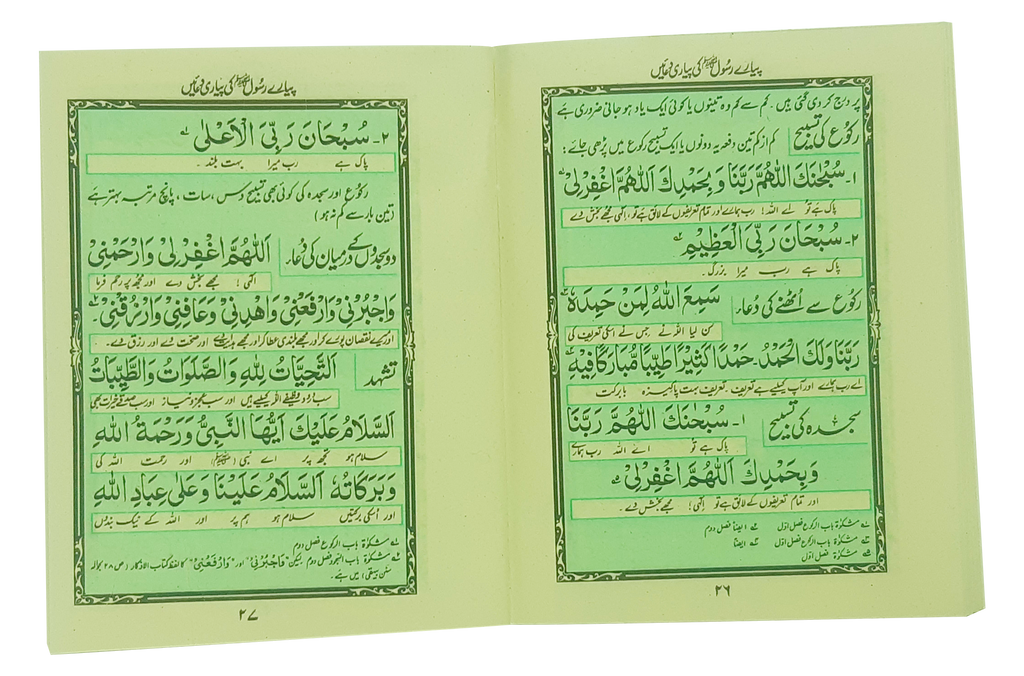 پیارے رسُول ﷺ کی پیاری دُعائیں
پر درج کر دی گئی ہیں۔ کم سے کم وہ تینوں یا کوئی ایک یاد ہو جانی ضروری ہے
رکوع کی تسبیح
کم از کم تین دفعہ یہ دونوں یا ایک تسبیح رکوع میں پڑھی جائے:
۱۔ سُبْحٰنَكَ اللّٰهُمَّ رَبَّنَا وَبِحَمْدِكَ اَللّٰهُمَّ اغْفِرْ لِیْ
پاک ہے تُو لے اللہ! رب ہمارے اور تمام تعریفوں کے لائق ہے تو، الٰہی مجھے بخش دے
۲۔ سُبْحَانَ رَبِّیَ الْعَظِیْمِ
پاک ہے رب میرا بزرگ۔
رکوع سے اُٹھنے کی دُعاء:
سَمِعَ اللّٰهُ لِمَنْ حَمِدَهٗ
سن لیا اللہ نے جس نے اسکی تعریف کی
رَبَّنَا وَلَكَ الْحَمْدُ حَمْدًا كَثِیْرًا طَیِّبًا مُّبَارَكًا فِیْهِ
اے رب ہمارے اور آپ کیلیے ہے تعریف، تعریف بہت پاکیزہ بابرکت
سجدہ کی تسبیح
۱۔ سُبْحٰنَكَ اللّٰهُمَّ رَبَّنَا
پاک ہے تو اے اللہ رب ہمارے
وَبِحَمْدِكَ اَللّٰهُمَّ اغْفِرْ لِیْ
اور تمام تعریفوں کے لائق ہے تو، الٰہی! مجھے بخش دے۔
مشکوٰۃ باب الرکوع فصل اوّل ایضاً فصل دوم
مشکوٰۃ باب الرکوع فصل اوّل ایضاً
مشکوٰۃ فصل اوّل
۲۶
پیارے رسُول ﷺ کی پیاری دُعائیں
۲۔ سُبْحَانَ رَبِّیَ الْاَعْلٰی
پاک ہے رب میرا بہت بلند۔
رکوع اور سجدہ کی کوئی بھی تسبیح دس، سات، پانچ مرتبہ بہتر ہے
(تین بار سے کم نہ ہو)
دو سجدوں کے درمیان کی دُعاء:
اَللّٰهُمَّ اغْفِرْ لِیْ وَارْحَمْنِیْ
الٰہی! مجھے بخش دے اور مجھ پر رحم فرما
وَاجْبُرْنِیْ وَارْفَعْنِیْ وَاهْدِنِیْ وَعَافِنِیْ وَارْزُقْنِیْ۔
اور میرے نقصان پورے کر اور مجھے بلندی عطا کر اور مجھے ہدایت دے اور صحت دے اور رزق دے۔
تشہد
اَلتَّحِیَّاتُ لِلّٰهِ وَالصَّلَوَاتُ وَالطَّیِّبَاتُ
سب اور وظیفے اللہ کیلیے ہیں اور سب عجز و نیاز اور سب صدقے خیرات بھی
اَلسَّلَامُ عَلَیْكَ اَیُّهَا النَّبِیُّ وَرَحْمَةُ اللّٰهِ
سلام ہو تجھ پر اے نبی (ﷺ) اور رحمت اللہ کی
وَبَرَكَاتُهٗ اَلسَّلَامُ عَلَیْنَا وَعَلٰی عِبَادِ اللّٰهِ
اور اسکی برکتیں سلام ہو ہم پر اور اللہ کے نیک بندوں
مشکوٰۃ باب الرکوع فصل دوم
مشکوٰۃ باب السجود فصل دوم لیکن "فَاجْبُرْنِیْ" اور "وَارْفَعْنِیْ" کا لفظ کتاب الاذکار (ص ۲۸ بحوالہ
سنن بیہقی) میں ہے۔
۲۷